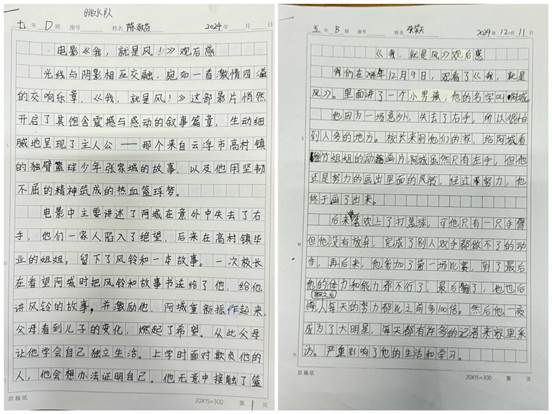 跳水队
七 年 D 班 座号 姓名 陈 2024 年 月 日
电影《我，就是风！》观后感
光线与阴影相互交融，宛如一首激情四溢
的交响乐章，《我，就是风！》这部影片悄然
开启了其饱含震撼与感动的叙事篇章，生动细
腻地呈现了主人公——那个来自云浮市高村镇
的独臂篮球少年张家城的故事，以及他用坚韧
不屈的精神筑成的热血篮球梦。
电影中主要讲述了阿城在意外中失去了右
手，他们一家人陷入了绝望，后来在高村镇毕
业的姐姐，留下了风铃和一本故事。一次校长
在看望阿城时把风铃和故事书送给了他，给他
讲风铃的故事，并激励他，阿城重新振作起来，
父母看到儿子的变化，燃起了希望。从此父母
让他学会自己独立生活。上学时面对欺负他的
人，他会想办法证明自己。他无意中接触了篮
20X15=300
五 年 B 班 座号 姓名 2024 年 12 月 11 日
《我，就是风》观后感
我们在 12月9日，观看了《我，就是
风》。里面讲了一个小男孩，他的名字叫阿城
他因为一场意外，失去了右手，所以很怕
到人多的地方。校长来到他们的家，给阿城看
姐姐的动画片阿城虽然只有左手，但他
还是努力的画出里面的风铃，经过 努力，他
终于画了出来。
后来 喜欢上了打篮球，可他只有一只手臂
但他没有放弃，完成了别人双手都做不了的动
作，再后来，他参加了第一场比赛，到了最后
他的体力和能力都不行了，最后输了，他也后
悔，每天的努力都比之前多加倍。然后他一夜
成为了大明星，每天都有许多的记者来家里采
访。严重影响了他的生活和学习。
20X15=300